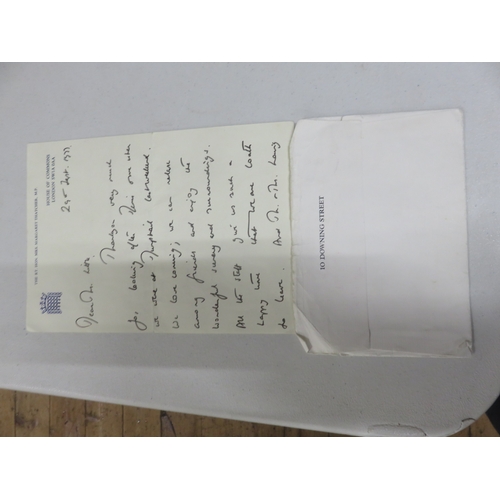 THE RT. HON. MRS. MARGARET THATCHER, M.P.
HOUSE OF COMMONS
LONDON SW1A 0AA
Sept.
Dear
Thank you very much
for looking after when
we were at
We love coming; we can relax
among friends and enjoy the
wonderful and surroundings.
All the staff such a
happy time that we are loath
to leave. And
10 DOWNING STREET